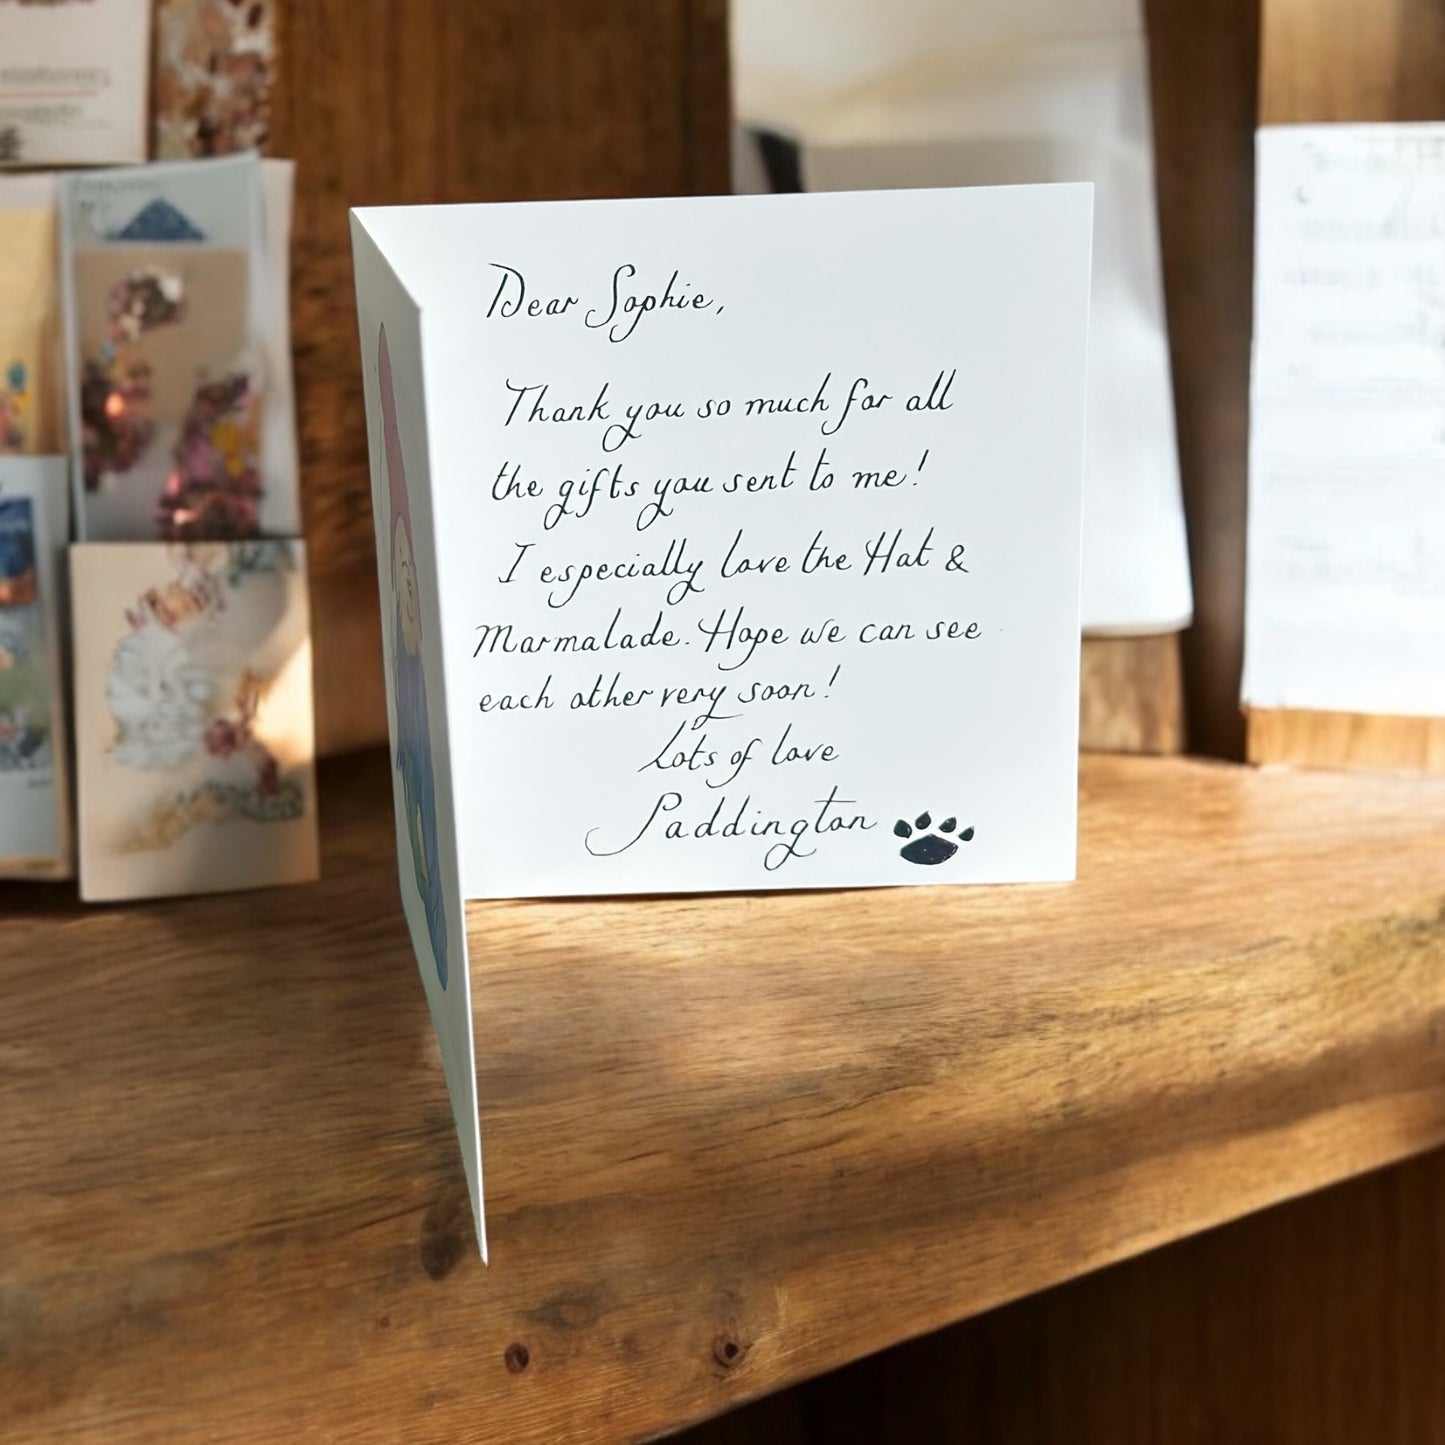 Dear Sophie,
Thank you so much for all
the gifts you sent to me!
I especially love the Hat &
Marmalade. Hope we can see
each other very soon!
Lots of love
Paddington